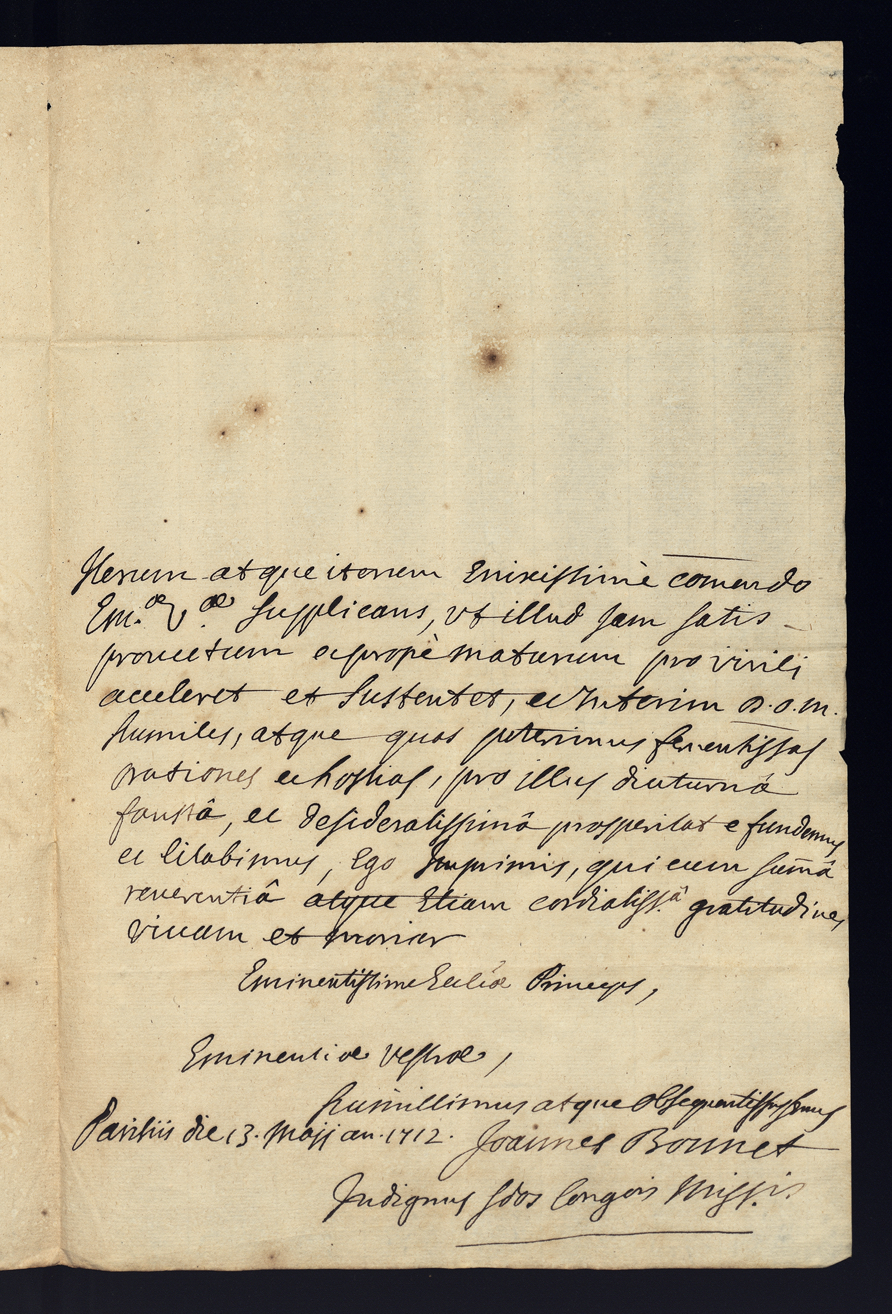 Iterum atque iterum enixissimè comendo
Em.æ V.æ supplicans, vt illud jam satis
prouectum ac propè maturum pro virili
acceleret et sustentet, ac Interim D. O. M.
humiles, atque quas poterimus feruentissas
orationes ac hostias, pro illius diuturnâ
faustâ, ac desideratissimâ prosperitat e fundemus
ac litabimus, Ego Imprimis, qui cum sumâ
reuerentiâ atque Etiam cordialiss.â gratitudine,
viuam et moriar
Eminentissime Ecclæ Princeps,
Eminentiæ Vestræ,
humillimus atque obsequentissimus
Parisiis die 13. Majj an. 1712. Joannes Bonnet
Indignus Congōis Miss.is